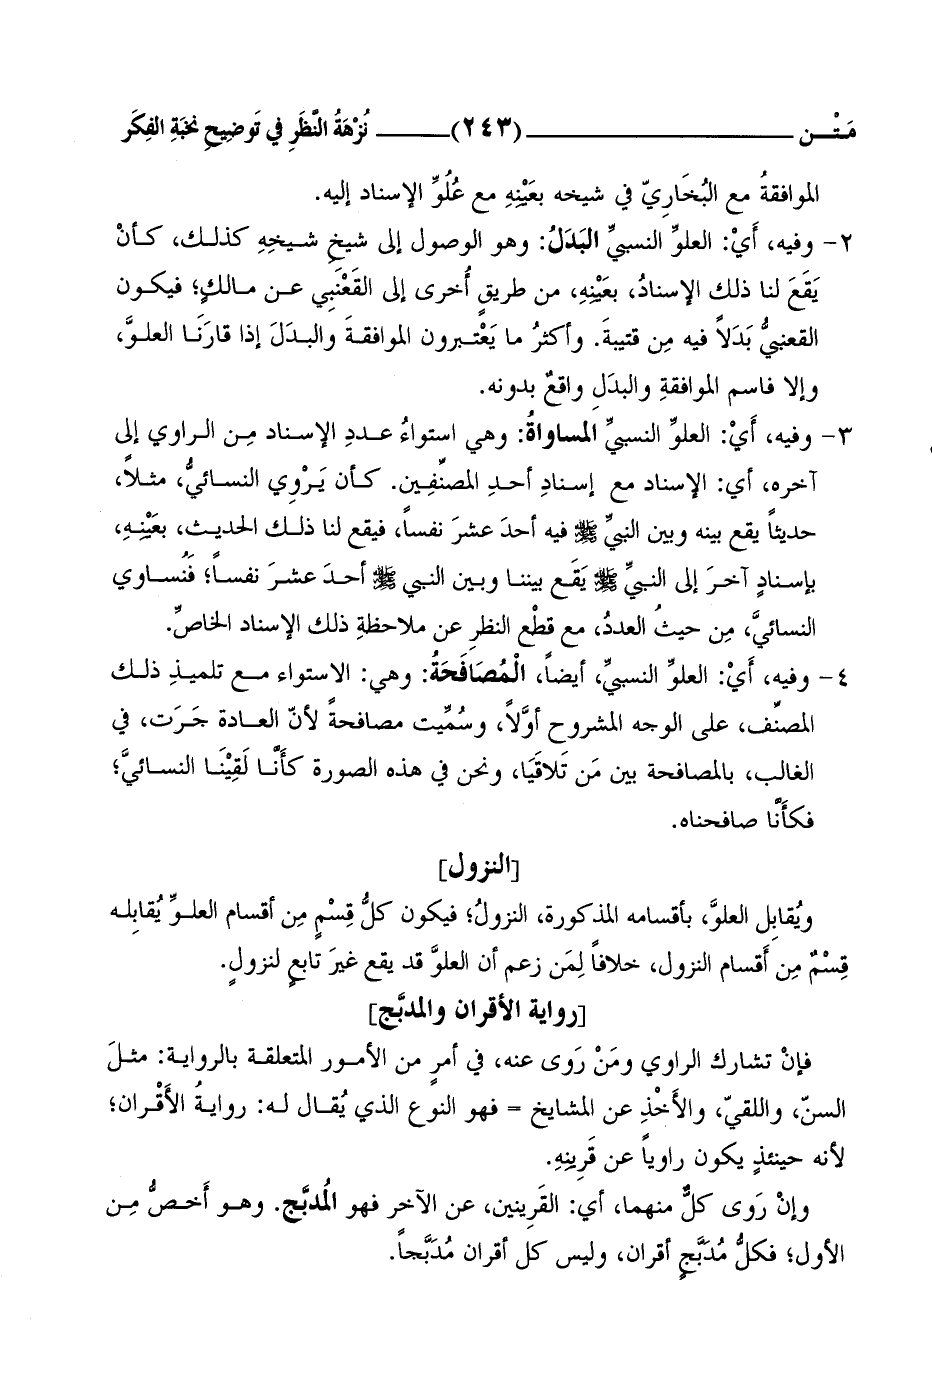 مَتْـن (٢٤٣) نُزْهَةُ النَّظَرِ في تَوضِيحِ نخبَةِ الفِكَر
الموافقةُ مع البُخَاريّ في شيخه بعَيْنِهِ مع عُلُوِّ الإسناد إليه.
٢- وفيه، أَيْ: العلوِّ النسبيِّ البَدَلُ: وهو الوصول إلى شيخِ شيخِهِ كذلك، كأنْ
يَقَعَ لنا ذلك الإسنادُ، بعَيْنِهِ، من طريقٍ أُخرى إلى القَعْنَبِي عن مالكٍ؛ فيكون
القعنبيُّ بَدَلاً فيه مِن قتيبةَ. وأكثرُ ما يَعْتبرون الموافقةَ والبدلَ إذا قارنَا العلوَّ،
وإلا فاسم الموافقةِ والبدَلِ واقعٌ بدونه.
٣- وفيه، أَيْ: العلوِّ النسبيِّ المساواةُ: وهي استواءُ عددِ الإسناد مِن الراوي إلى
آخره، أي: الإسناد مع إسنادِ أحدِ المصنِّفِين. كأن يَرْوِي النسائيُّ، مثلاً،
حديثاً يقع بينه وبين النبيِّ ﷺ فيه أحدَ عشرَ نفساً، فيقع لنا ذلك الحديث، بعَيْنِهِ،
بإسنادٍ آخرَ إلى النبيِّ ﷺ يَقَع بيننا وبين النبي ﷺ أحدَ عشرَ نفساً؛ فنُساوي
النسائيَّ، مِن حيثُ العددُ، مع قطْع النظرِ عن ملاحظةِ ذلك الإسناد الخاصِّ.
٤- وفيه، أَيْ: العلوِّ النسبيِّ، أيضاً، الْمُصَافَحَةُ: وهي: الاستواء مع تلميذِ ذلك
المصنِّف، على الوجه المشروح أوَّلاً، وسُمِّيت مصافحةً لأنّ العادة جَرَت، في
الغالب، بالمصافحة بين مَن تَلاقَيَا، ونحن في هذه الصورة كأنَّا لَقِيْنَا النسائيَّ؛
فكأنَّا صافحناه.
[النزول]
ويُقابل العلوَّ، بأقسامه المذكورة، النزولُ؛ فيكون كلُّ قِسْمٍ مِن أقسام العلوِّ يُقابِله
قِسْمٌ مِن أَقسام النزول، خلافاً لِمَن زعم أن العلوَّ قد يقع غيرَ تابعٍ لنزولٍ.
[رواية الأقران والمدبَّج]
فإنْ تشارك الراوي ومَنْ رَوى عنه، في أمرٍ من الأمور المتعلقة بالرواية: مثلَ
السنّ، واللقيّ، والأَخْذِ عن المشايخ = فهو النوع الذي يُقال له: روايةُ الأَقْران؛
لأنه حينئذٍ يكون راوياً عن قَرِينِهِ.
وإنْ رَوى كلٌّ منهما، أي: القَرِينين، عن الآخر فهو المُدبَّج. وهو أَخصُّ مِن
الأول؛ فكلُّ مُدَبَّجٍ أقران، وليس كل أقران مُدَبَّجاً.